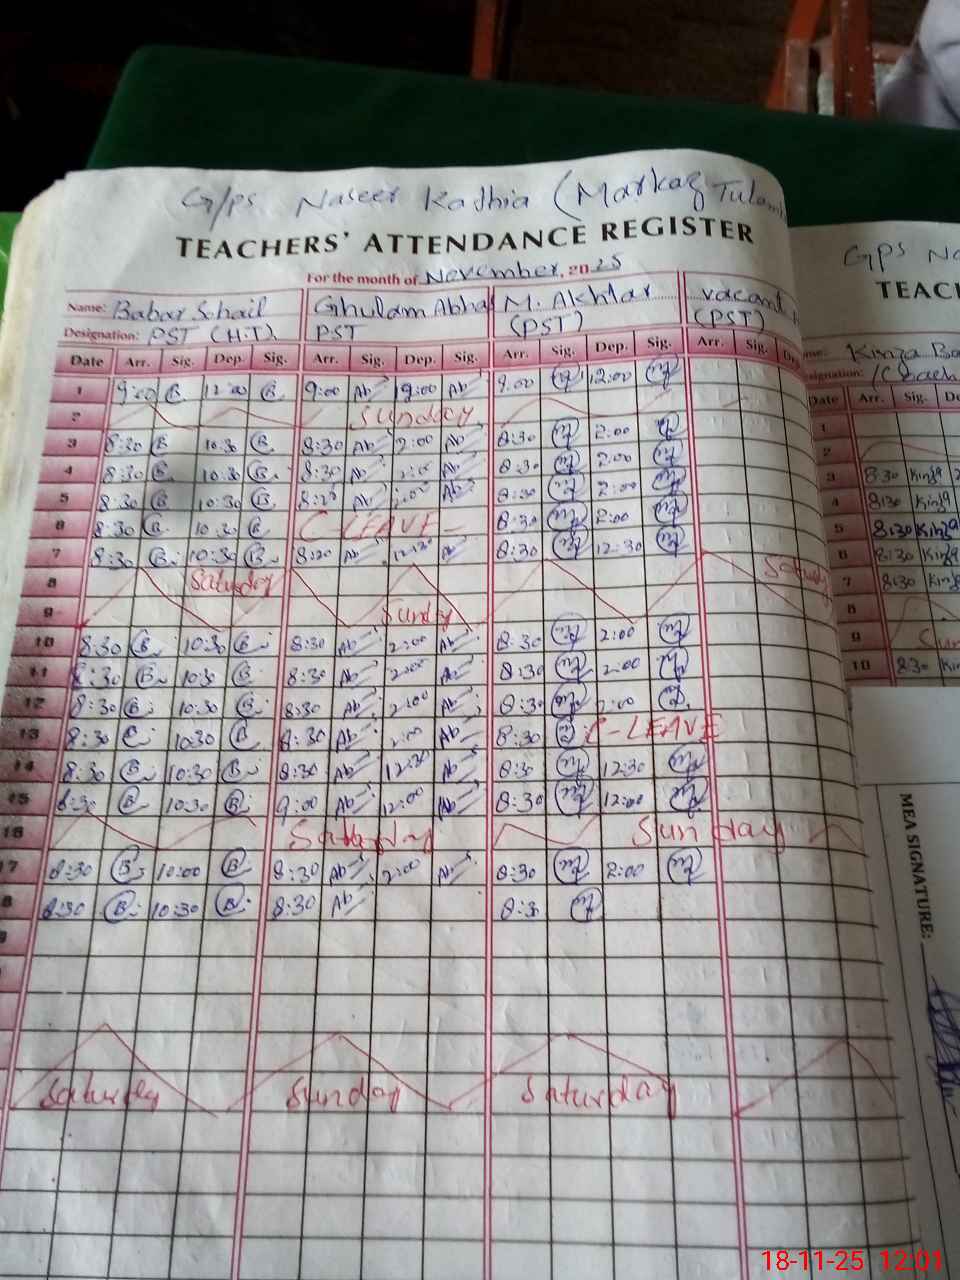 G/ps Naseer Kadhia (Markaz Tulam
TEACHERS' ATTENDANCE REGISTER
For the month of November, 2025
Name: Babar Sohail Ghulam Abbas M. Akhtar vacant
Designation: PST (H.T) PST (PST) (PST)
Date Arr. Sig. Dep. Sig. Arr. Sig. Dep. Sig. Arr. Sig. Dep. Sig. Arr. Sig. De
1 9:00 B 12:00 B 9:00 Ab 12:00 Ab 9:00 12:00
2 Sunday
3 8:30 B 10:30 B 8:30 Ab 2:00 Ab 8:30 2:00
4 8:30 B 10:30 B 8:30 Ab 2:00 Ab 8:30 2:00
5 8:30 B 10:30 B 8:30 Ab 2:00 Ab 8:30 2:00
6 8:30 B 10:30 B C-LEAVE 8:30 2:00
7 8:30 B 10:30 B 8:30 Ab 12:30 Ab 8:30 12:30
8 Saturday Saturday
9 Sunday
10 8:30 B 10:30 B 8:30 Ab 2:00 Ab 8:30 2:00
11 8:30 B 10:30 B 8:30 Ab 2:00 Ab 8:30 2:00
12 8:30 B 10:30 B 8:30 Ab 2:00 Ab 8:30 2:00
13 8:30 10:30 8:30 Ab 2:00 Ab 8:30 C-LEAVE
14 8:30 B 10:30 B 8:30 Ab 12:30 Ab 8:30 12:30
15 8:30 B 10:30 B 9:00 Ab 12:00 Ab 8:30 12:00
16 Saturday Sunday
17 8:30 B 10:00 B 8:30 Ab 2:00 Ab 8:30 2:00
8 8:30 B 10:30 B 8:30 Ab 8:30
9
Saturday Sunday Saturday
GPS Na
TEACH
me: Kinza
signation:
Date Arr. Sig. De
1
2
3 8:30 Kinza
4 8:30 Kinza
5 8:30 Kinza
6 8:30 Kinza
7 8:30 Kinza
8
9 Sun
10 8:30 Kin
MEA SIGNATURE:
18-11-25 12:01